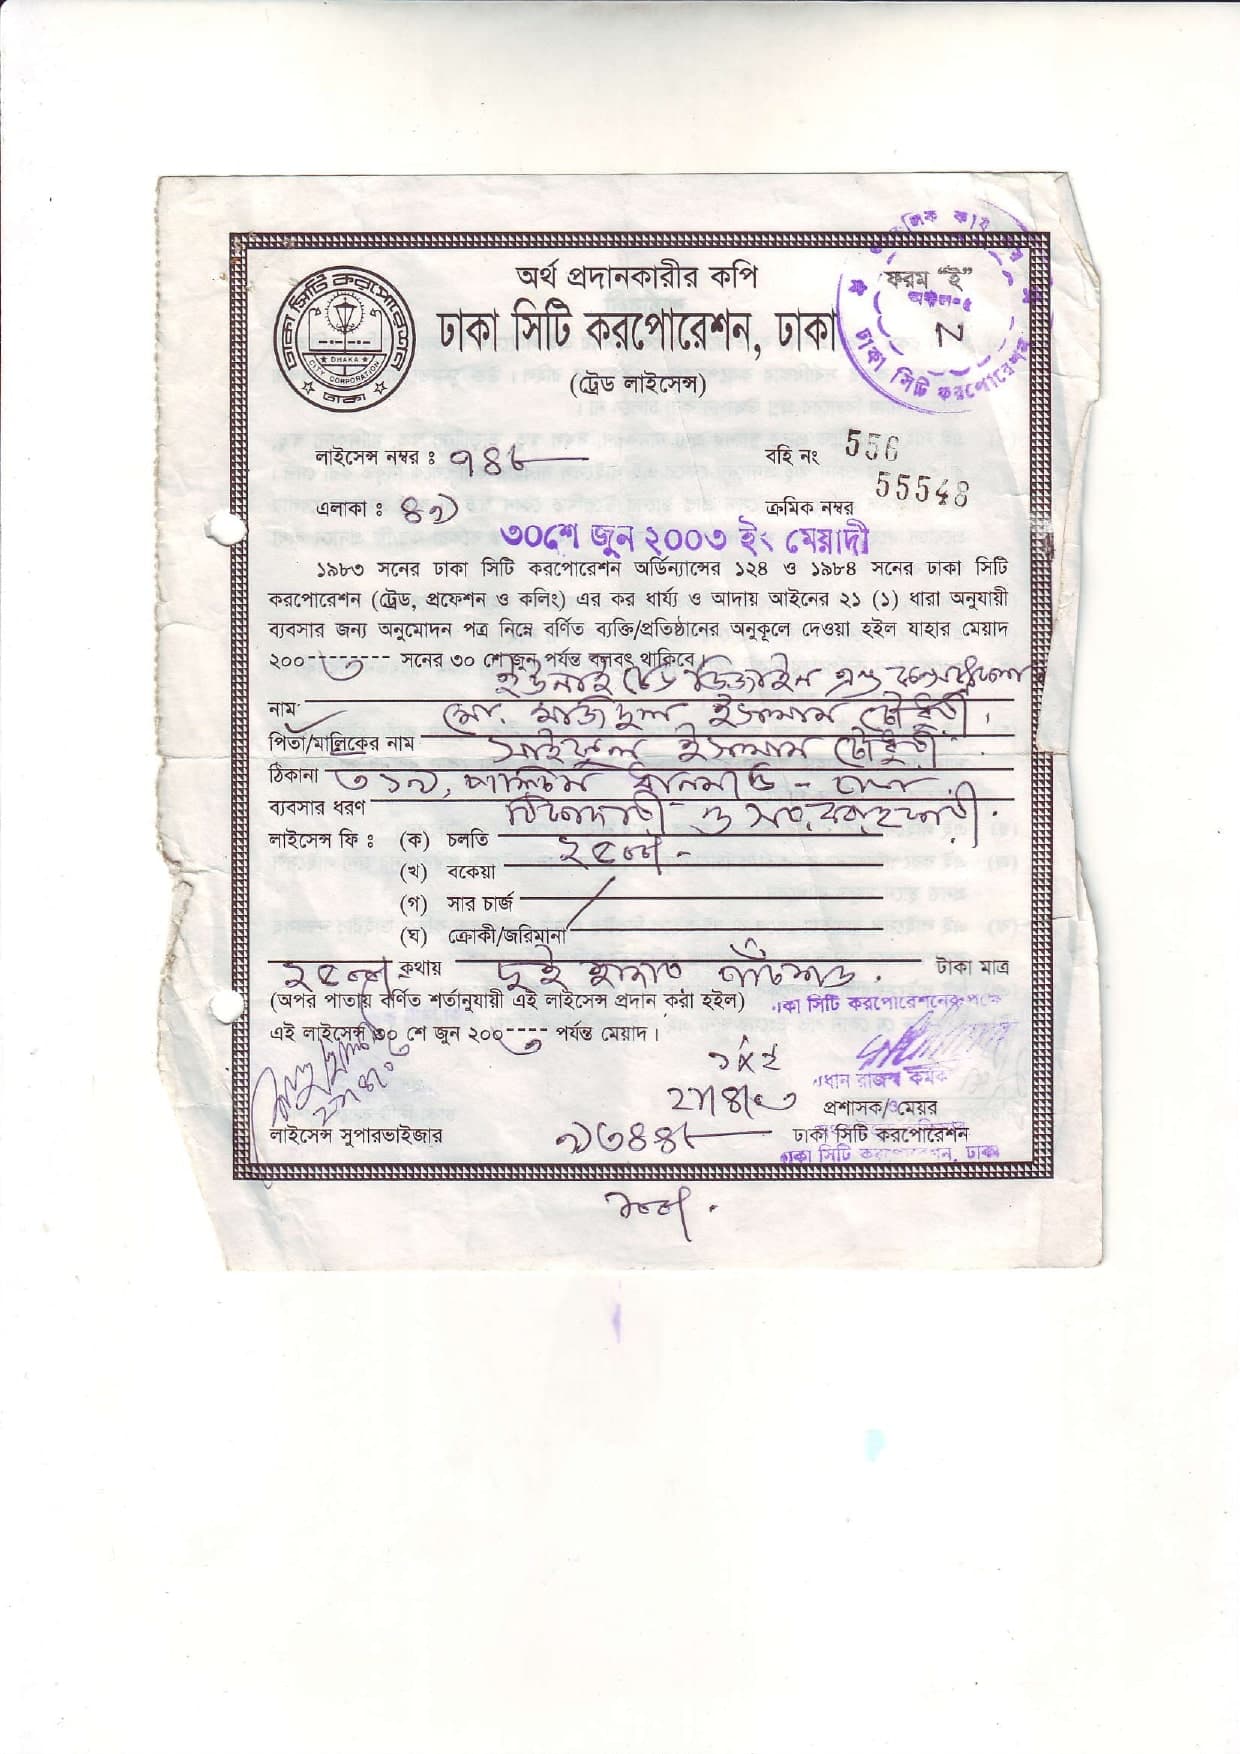 অর্থ প্রদানকারীর কপি
ফরম “ই”
ঢাকা সিটি করপোরেশন
DHAKA
CITY CORPORATION
ঢাকা
ঢাকা সিটি করপোরেশন, ঢাকা
অঞ্চল-৫
ঢাকা সিটি করপোরেশন
(ট্রেড লাইসেন্স)
লাইসেন্স নম্বর : ৭৪৮
বহি নং 556
এলাকা : ৪৯
ক্রমিক নম্বর 55548
৩০শে জুন ২০০৩ ইং মেয়াদী
১৯৮৩ সনের ঢাকা সিটি করপোরেশন অর্ডিন্যান্সের ১২৪ ও ১৯৮৪ সনের ঢাকা সিটি
করপোরেশন (ট্রেড, প্রফেশন ও কলিং) এর কর ধার্য্য ও আদায় আইনের ২১ (১) ধারা অনুযায়ী
ব্যবসার জন্য অনুমোদন পত্র নিম্নে বর্ণিত ব্যক্তি/প্রতিষ্ঠানের অনুকূলে দেওয়া হইল যাহার মেয়াদ
২০০৩ সনের ৩০ শে জুন পর্যন্ত বলবৎ থাকিবে।
ইউনাইটেড ডিজাইন এন্ড
নাম মো. মাজিদুল ইসলাম চৌধুরী।
পিতা/মালিকের নাম সাইফুল ইসলাম চৌধুরী
ঠিকানা ৩১৯, পশ্চিম ধানমন্ডি - ঢাকা
ব্যবসার ধরণ ঠিকাদারী ও সরবরাহকারী.
লাইসেন্স ফি : (ক) চলতি ২৫০০/-
(খ) বকেয়া
(গ) সার চার্জ
(ঘ) ক্রোকী/জরিমানা
২৫০০/ কথায় দুই হাজার পাঁচশত. টাকা মাত্র
(অপর পাতায় বর্ণিত শর্তানুযায়ী এই লাইসেন্স প্রদান করা হইল)
ঢাকা সিটি করপোরেশনের পক্ষে
এই লাইসেন্স ৩০ শে জুন ২০০৩ পর্যন্ত মেয়াদ।
প্রধান রাজস্ব কর্মক
প্রশাসক/মেয়র
লাইসেন্স সুপারভাইজার
৯৩৪৪৮
ঢাকা সিটি করপোরেশন
ঢাকা সিটি করপোরেশন, ঢাকা